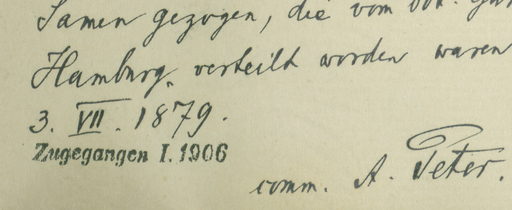 Samen gezogen, die vom bot. Gar
Hamburg verteilt worden waren
3. VII. 1879.
Zugegangen I. 1906
comm. A. Peter.